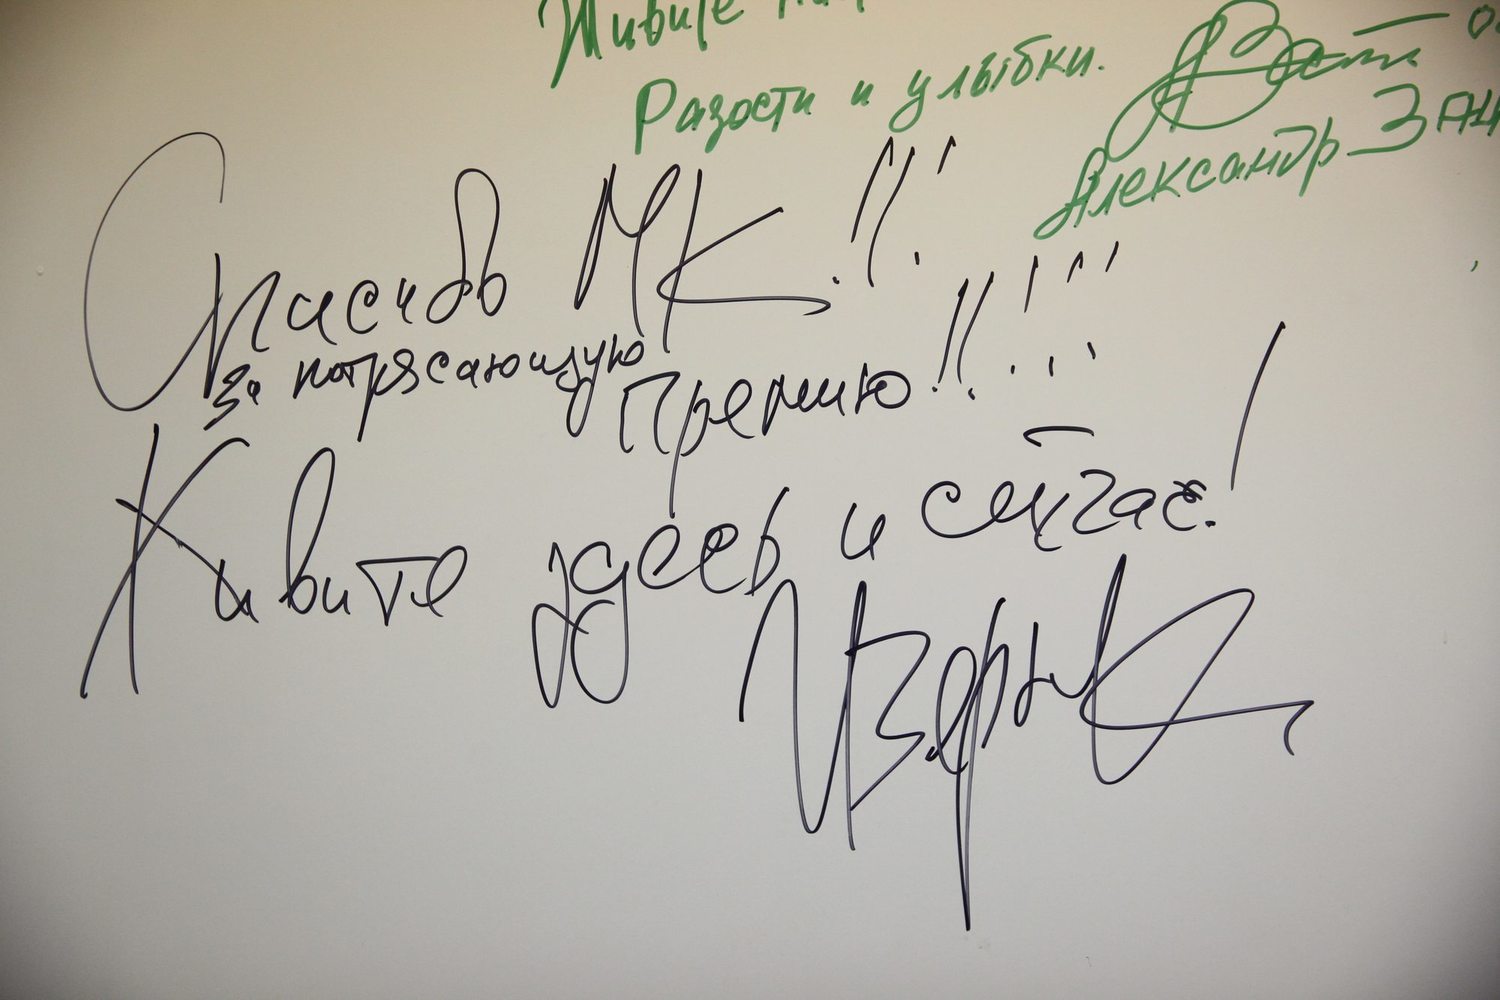 Живите
Разости и улыбки.
Александр ЗАЦ
Спасибо МК!!!
за потрясающую
Премию!!!!!
Живите здесь и сейчас!